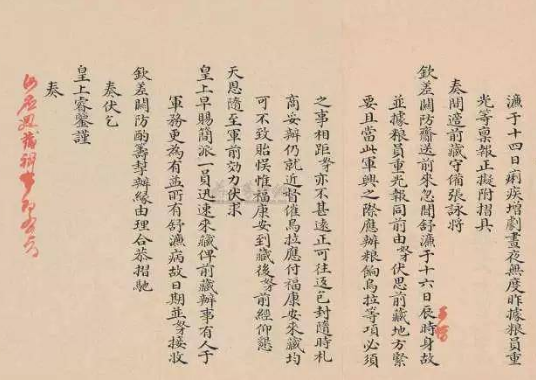 濂于十四日痢疾增劇晝夜無度昨據糧員重
光等稟報正擬附摺具
奏間適前藏守備張詠將
欽差關防齎送前來忽聞舒濂于十六日辰時身故
並據糧員重光報同前由奴才伏思前藏地方緊
要且當此軍興之際應辦糧餉烏拉等項必須
之事相距奴才亦不甚遠正可往返包封隨時札
商妥辦仍就近督催烏拉應付福康安來藏均
可不致貽悞惟福康安到藏後奴才前經仰懇
天恩隨至軍前効力伏求
皇上早賜簡派一員迅速來藏俾前藏辦事有人于
軍務更為有益所有舒濂病故日期並奴才接收
欽差關防酌籌辦緣由理合恭摺馳
奏伏乞
皇上睿鑒謹
奏